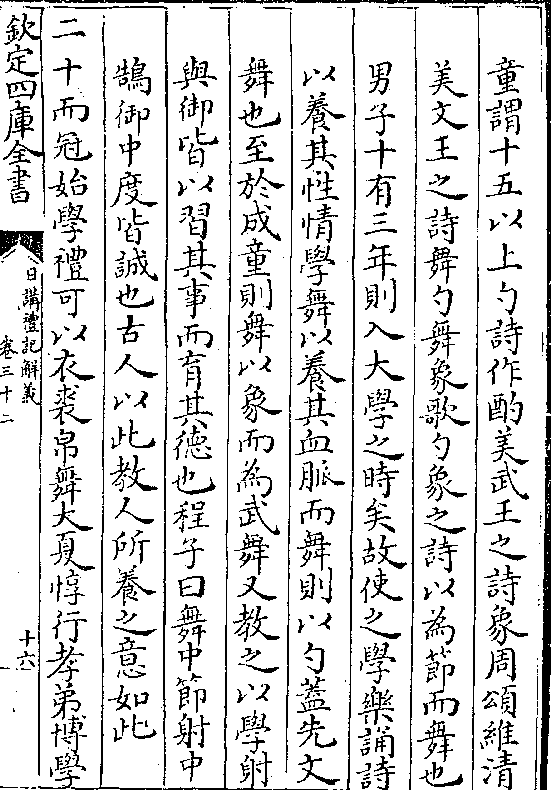 童謂十五以上勺詩作酌美武王之詩象周頌維清
美文王之詩舞勺舞象歌勺象之詩以為節而舞也
男子十有三年則入大學之時矣故使之學樂誦詩
以養其性情學舞以養其血脈而舞則以勺蓋先文
舞也至於成童則舞以象而為武舞又教之以學射
與御皆以習其事而育其德也程子曰舞中節射中
鵠御中度皆誠也古人以此教人所養之意如此
二十而冠始學禮可以衣裘帛舞大夏惇行孝弟博學
欽定四庫全書
日講禮記解義
卷三十二
十六